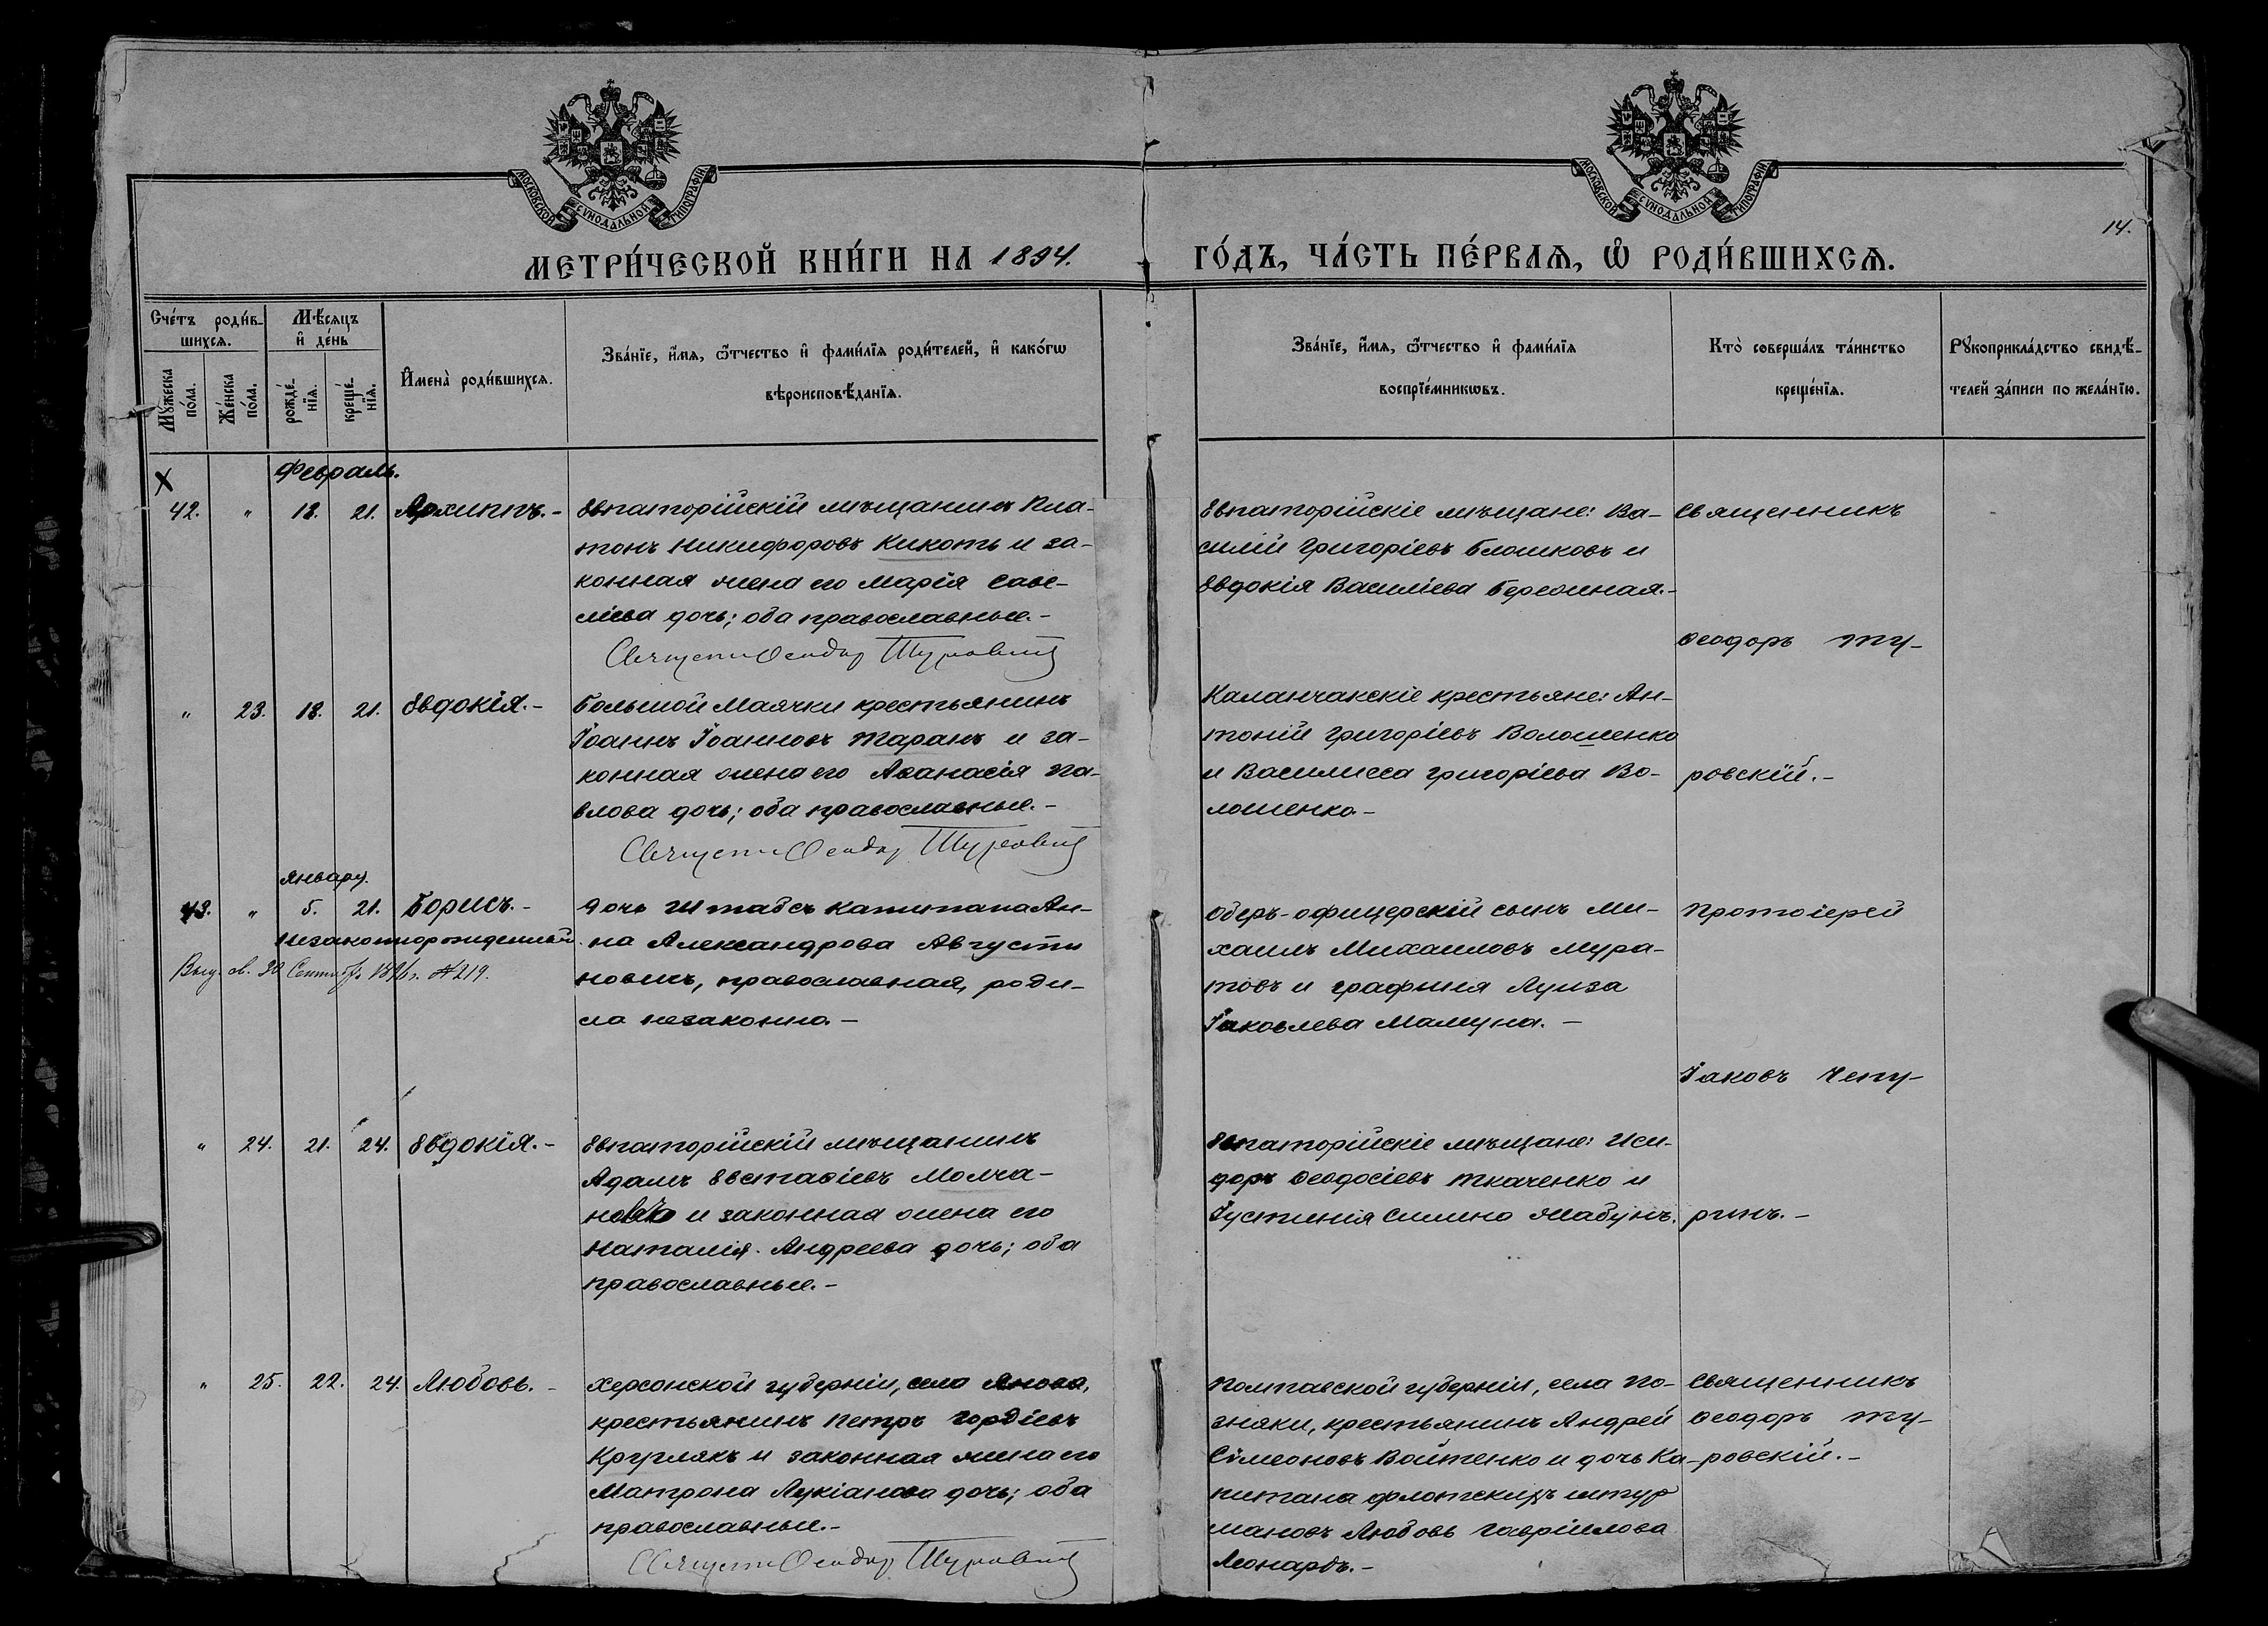 МОСКОВСКОЙ СѴНОДАЛЬНОЙ ТИПОГРАФІИ
МОСКОВСКОЙ СѴНОДАЛЬНОЙ ТИПОГРАФІИ
14.
МЕТРИ́ЧЕСКОЙ КНИ́ГИ НА 1894.
ГО́ДЪ, ЧА́СТЬ ПЕ́РВАѦ, Ѽ РОДИ́ВШИХСѦ.
Сче́тъ роди́в-
шихсѧ.
Мѣ́сѧцъ
и҆ де́нь
Мꙋ́жеска
по́ла.
Же́нска
по́ла.
рожде́-
нїѧ.
креще́-
нїѧ.
И҆мена̀ роди́вшихсѧ.
Зва́нїе, и҆́мѧ, ѻ҆́тчество и҆ фами́лїѧ роди́телей, и҆ како́гѡ
вѣроисповѣ́данїѧ.
Зва́нїе, и҆́мѧ, ѻ҆́тчество и҆ фами́лїѧ
воспрїе́мникѡвъ.
Кто̀ соверша́лъ та́инство
креще́нїѧ.
Рꙋкоприкла́дство свидѣ́-
телей за́писи по жела́нїю.
Февраль.
Х
42. " 18. 21. Архиппъ.-
Евпаторійскій мѣщанинъ Пла-
тонъ Никифоровъ Кикоть и за-
конная жена его Марія Саве-
ліева дочь; оба православные.-
Священ Ѳеодор Туровскій
Евпаторійскіе мѣщане: Ва-
силій Григоріевъ Блошковъ и
Евдокія Василіева Бережная.-
Священникъ
Ѳеодоръ Ту-
ровскій.-
" 23. 18. 21. Евдокія.-
Большой Маячки крестьянинъ
Іоаннъ Іоанновъ Таранъ и за-
конная жена его Аѳанасія Па-
влова дочь; оба православные.-
Священ Ѳеодор Туровскій
Каланчакскіе крестьяне: Ан-
тоній Григоріевъ Волошенко
и Василисса Григоріева Во-
лошенко.-
Январь.
43. " 5. 21. Борисъ.-
незаконнорожденный.
Выд. св. 30 Сентября 1896 г. № 219.
Дочь Штабсъ Капитана Ан-
на Александрова Августи
новичъ, православная, роди-
ла незаконно.-
Оберъ-офицерскій сынъ Ми-
хаилъ Михаиловъ Мура-
товъ и графиня Луиза
Іаковлева Мамуна.-
Протоіерей
Іаковъ Чепу-
ринъ.-
" 24. 21. 24. Евдокія.-
Евпаторійскій мѣщанинъ
Адамъ Евстаѳіевъ Молча-
новъ и законная жена его
Наталія Андреева дочь; оба
православные.-
Евпаторійскіе мѣщане: Иси-
доръ Ѳеодосіевъ Ткаченко и
Іустинія Жабунъ.
" 25. 22. 24. Любовь.-
Херсонской губерніи, села Янова,
крестьянинъ Петръ Гордіевъ
Круглякъ и законная жена его
Матрона Лукіанова дочь; оба
православные.-
Священ Ѳеодор Туровскій
Полтавской губерніи, села По-
зняки, крестьянинъ Андрей
Сімеоновъ Войтенко и дочь Ка-
питана флотскихъ штур
мановъ Любовь Гавріилова
Леонардъ.-
Священникъ
Ѳеодоръ Ту-
ровскій.-